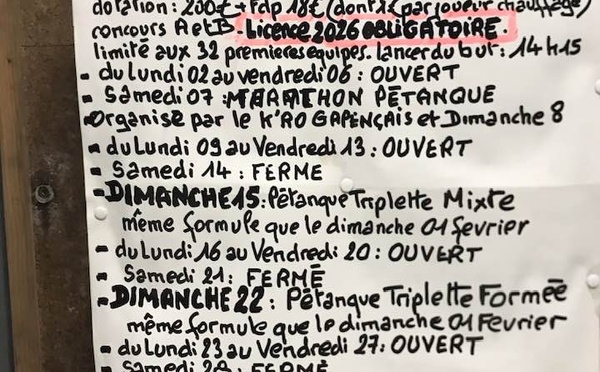 dotation: 200€ + Fdp 18€ (dont 2€ par joueur chauffage)
concours A et B. Licence 2026 OBLIGATOIRE.
limité aux 32 premières équipes. lancer du but: 14h15
- du Lundi 02 au vendredi 06: OUVERT
- Samedi 07: MARATHON PÉTANQUE
Organisé par le K'RO GAPENÇAIS et Dimanche 8
- du Lundi 09 au Vendredi 13: OUVERT
- Samedi 14: FERMÉ
- DIMANCHE 15: Pétanque Triplette Mixte
même formule que le dimanche 01 février
- du Lundi 16 au Vendredi 20: OUVERT
- Samedi 21: FERMÉ
- DIMANCHE 22: Pétanque Triplette Formée
même formule que le dimanche 01 Février
- du Lundi 23 au Vendredi 27: OUVERT
- Samedi 28: FERMÉ